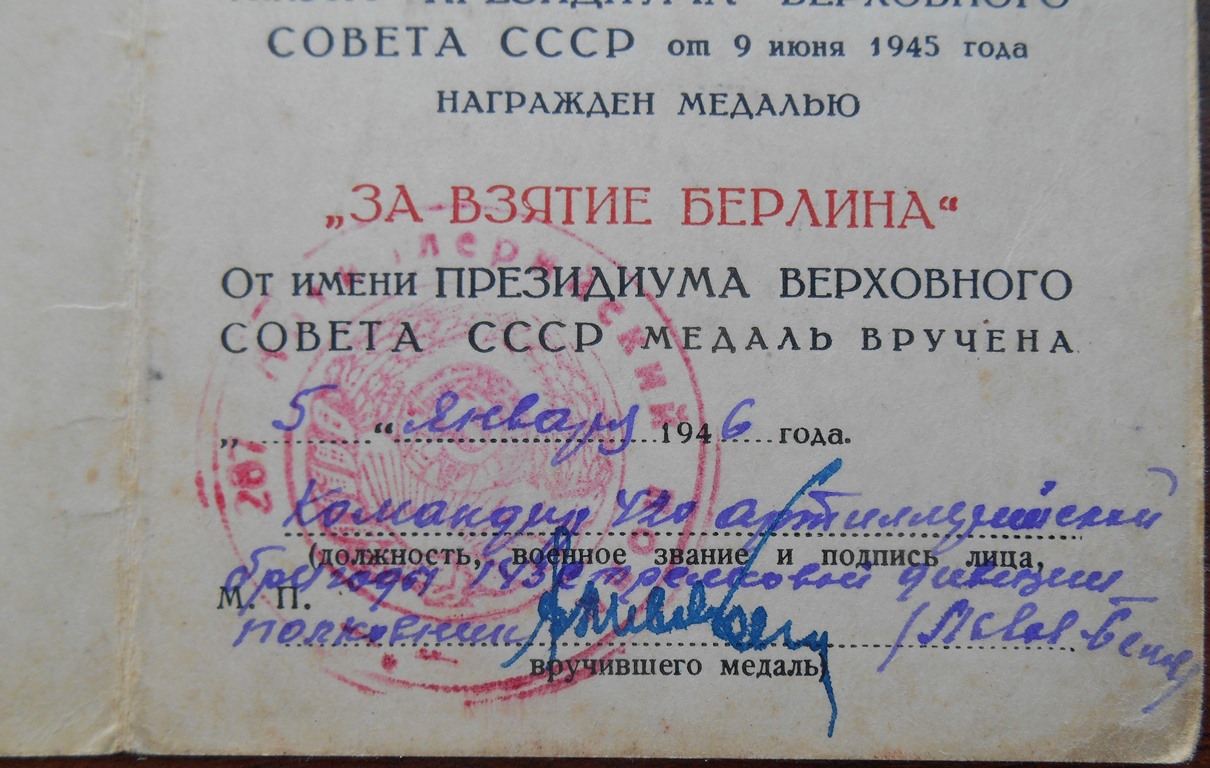 ПРЕЗИДИУМА ВЕРХОВНОГО
СОВЕТА СССР от 9 июня 1945 года
НАГРАЖДЕН МЕДАЛЬЮ
„ЗА ВЗЯТИЕ БЕРЛИНА“
От имени ПРЕЗИДИУМА ВЕРХОВНОГО
СОВЕТА СССР МЕДАЛЬ ВРУЧЕНА
„ 5 “ января 1946 года.
Командир артиллерийской
(должность, военное звание и подпись лица,
бригады стрелковой дивизии
М. П.
полковник
вручившего медаль)